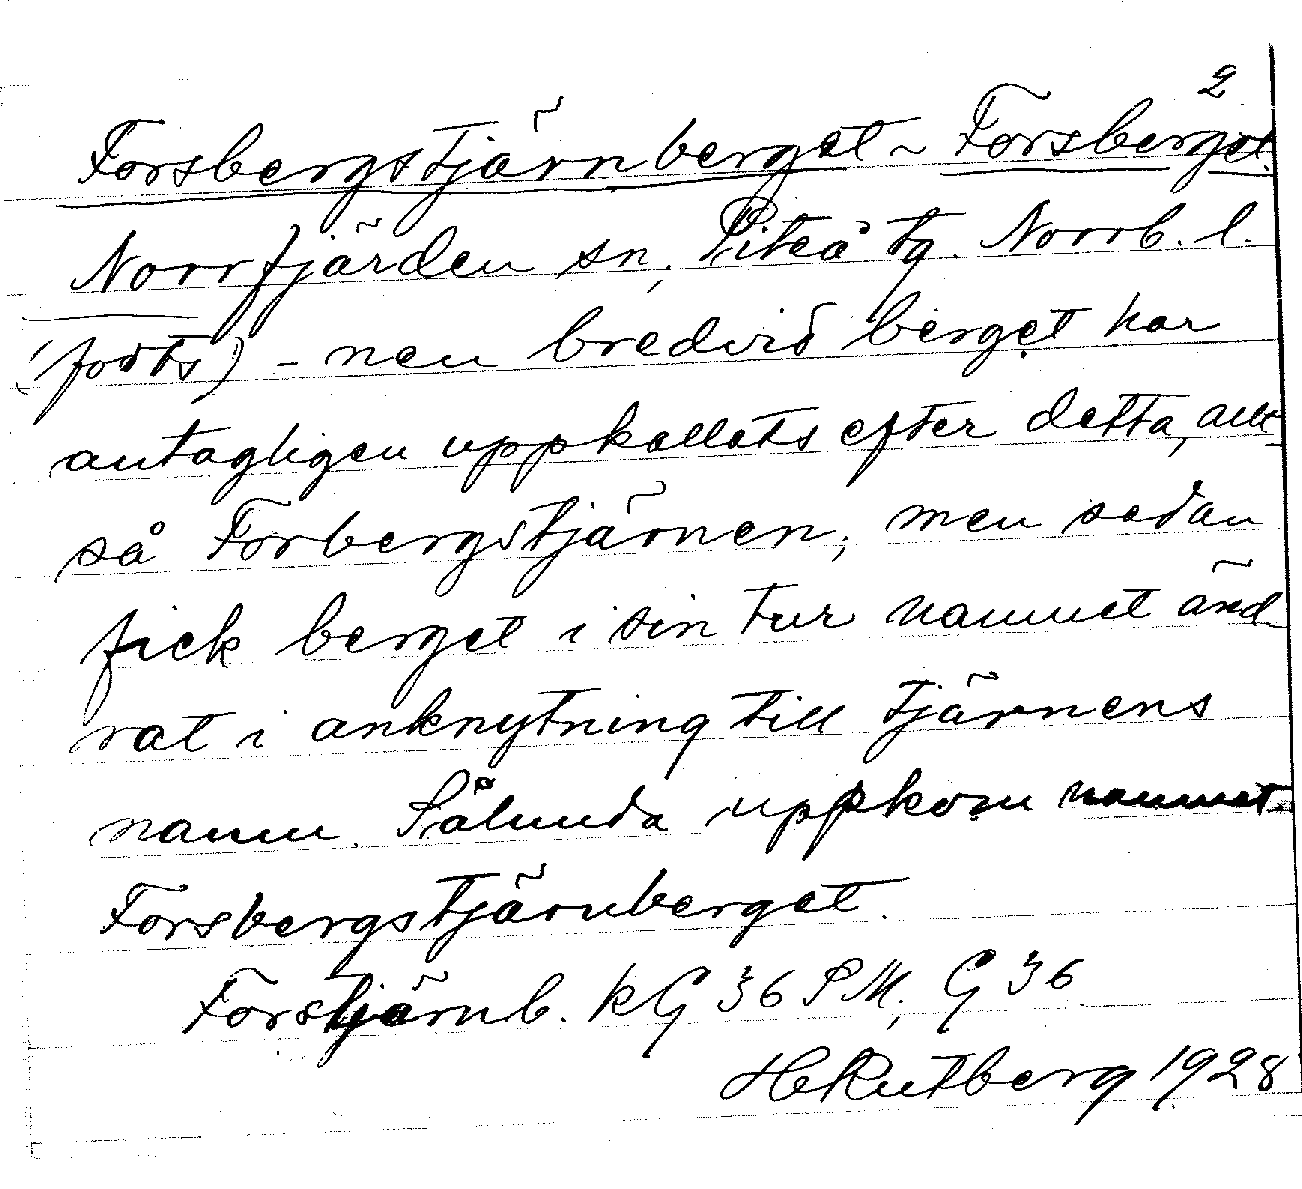 2
Forsbergstjärnberget ~ Forsberget.
Norrfjärden sn, Piteå tg. Norrb. l.
(forts) - nen bredvid berget har
antagligen uppkallats efter detta, allt-
så Forbergstjärnen; men sedan
fick berget i sin tur namnet änd-
rat i anknytning till tjärnens
namn. Sålunda uppkom namnet
Forsbergstjärnberget.
Forstjärnb. kG 36 SM, G 36
H Rutberg 1928